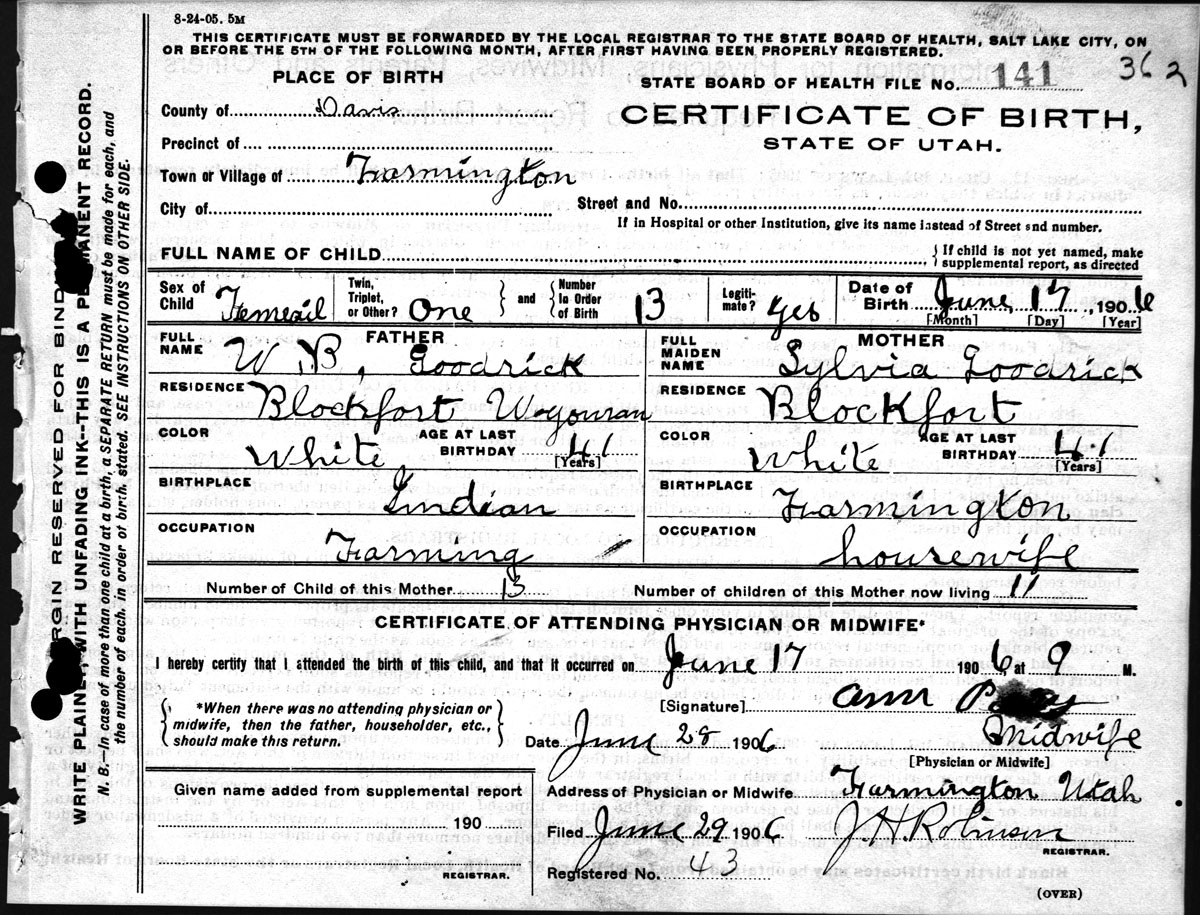 8-24-05. 5M
THIS CERTIFICATE MUST BE FORWARDED BY THE LOCAL REGISTRAR TO THE STATE BOARD OF HEALTH, SALT LAKE CITY, ON
OR BEFORE THE 5TH OF THE FOLLOWING MONTH, AFTER FIRST HAVING BEEN PROPERLY REGISTERED.
362
PLACE OF BIRTH
STATE BOARD OF HEALTH FILE No. 141
County of Davis
CERTIFICATE OF BIRTH,
STATE OF UTAH.
Precinct of
Town or Village of Farmington
City of
Street and No.
If in Hospital or other Institution, give its name instead of Street and number.
FULL NAME OF CHILD
{ If child is not yet named, make supplemental report, as directed
Sex of Child Femeail
Twin, Triplet, or Other? One } and { Number In Order of Birth 13
Legitimate? Yes
Date of Birth June, 17, 1906
[Month] [Day] [Year]
FATHER
FULL NAME W. B, Goodrick
MOTHER
FULL MAIDEN NAME Sylvia Goodrick
RESIDENCE Blockfort Wyouran
RESIDENCE Blockfort
COLOR White AGE AT LAST BIRTHDAY 41 [Years]
COLOR White AGE AT LAST BIRTHDAY 41 [Years]
BIRTHPLACE Indian
BIRTHPLACE Farmington
OCCUPATION Farming
OCCUPATION housewife
Number of Child of this Mother 13
Number of children of this Mother now living 11
CERTIFICATE OF ATTENDING PHYSICIAN OR MIDWIFE*
I hereby certify that I attended the birth of this child, and that it occurred on June 17 1906 at 9 M.
{ *When there was no attending physician or midwife, then the father, householder, etc., should make this return. }
[Signature] ann
Date June 28 1906 Midwife
[Physician or Midwife]
Given name added from supplemental report
190
REGISTRAR.
Address of Physician or Midwife Farmington Utah
Filed June 29 1906 J. H. Robinson
REGISTRAR.
Registered No. 43
(OVER)
MARGIN RESERVED FOR
WRITE PLAINLY, WITH UNFADING INK--THIS IS A PERMANENT RECORD.
N. B.—In case of more than one child at a birth, a SEPARATE RETURN must be made for each, and
the number of each, in order of birth, stated. SEE INSTRUCTIONS ON OTHER SIDE.